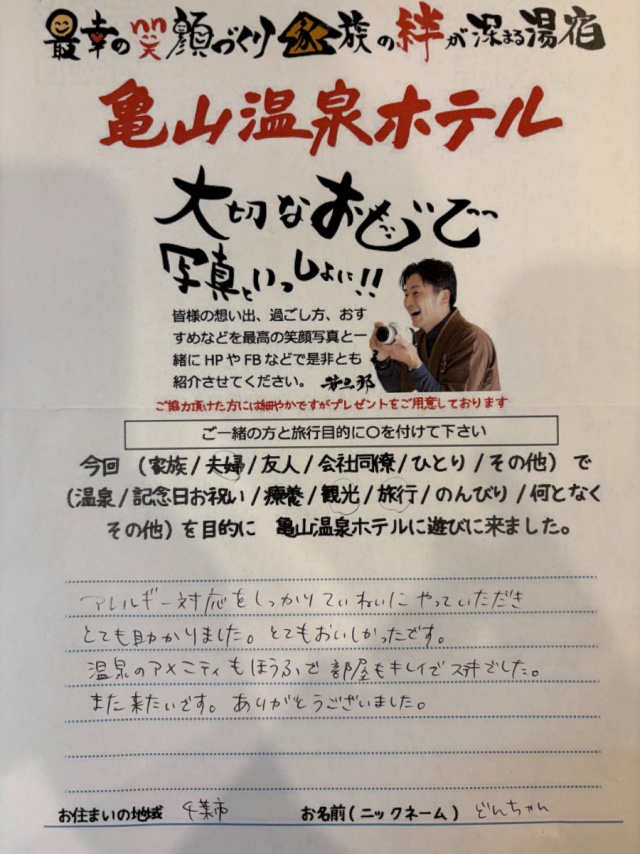 最幸の笑顔づくり 家族の絆が深まる湯宿
亀山温泉ホテル
大切なおもひでを
写真といっしょに!!
皆様の想い出、過ごし方、おす
すめなどを最高の笑顔写真と一
緒にHPやFBなどで是非とも
紹介させてください。 若旦那
ご協力頂けた方には細やかですがプレゼントをご用意しております
ご一緒の方と旅行目的に〇を付けて下さい
今回 (家族/夫婦/友人/会社同僚/ひとり/その他) で
(温泉/記念日お祝い/療養/観光/旅行/のんびり/何となく
その他) を目的に 亀山温泉ホテルに遊びに来ました。
アレルギー対応をしっかりていねいにやっていただき
とても助かりました。とてもおいしかったです。
温泉のアメニティもほうふで部屋もキレイでステキでした。
また来たいです。ありがとうございました。
お住まいの地域 千葉市 お名前(ニックネーム) どんちゃん